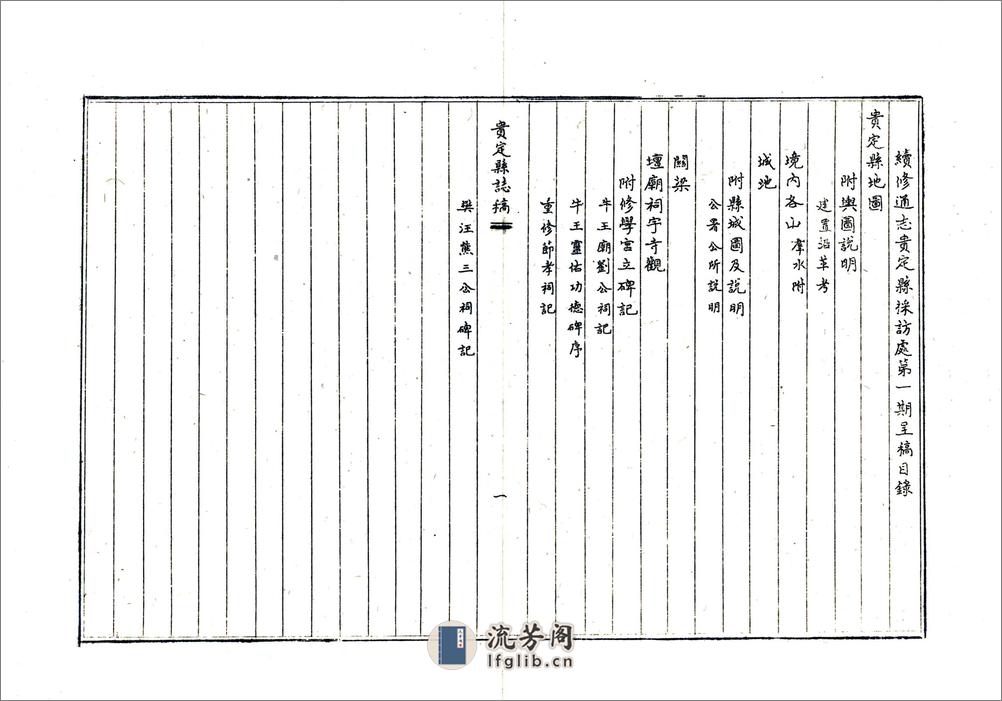 續修通志貴定縣採訪處第一期呈稿目錄
貴定縣地圖
附輿圖說明
建置沿革考
境內各山 羣水附
城池
附縣城圖及說明
公署公所說明
關梁
壇廟祠宇寺觀
附修學宮立碑記
牛王廟劉公祠記
牛王靈佑功德碑序
重修節孝祠記
貴定縣誌稿
一
樊汪熊三公祠碑記
流芳阁
lfglib.cn